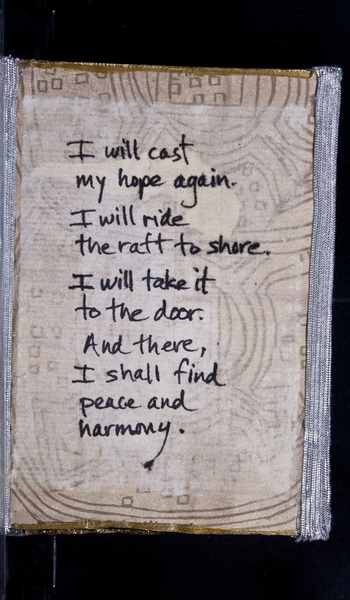 I will cast
my hope again.
I will ride
the raft to shore.
I will take it
to the door.
And there,
I shall find
peace and
harmony.